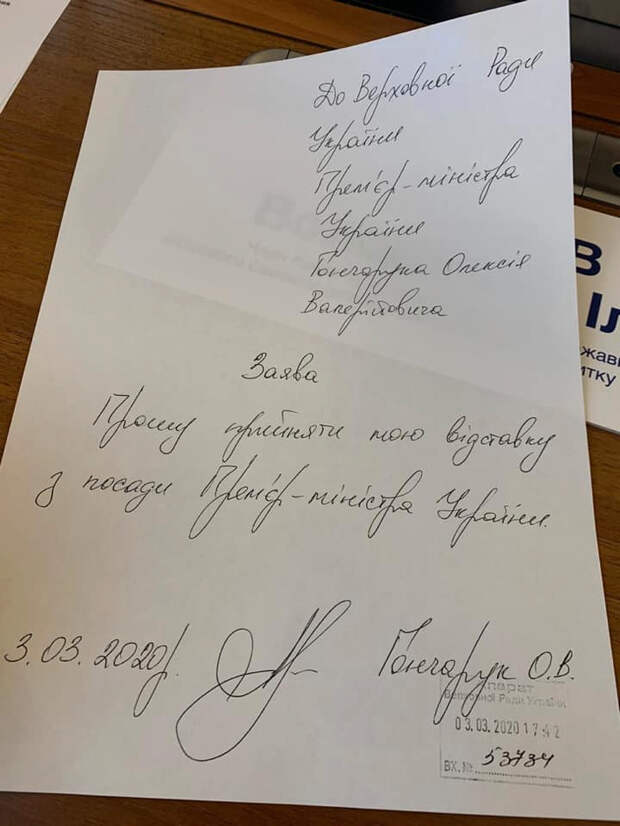 До Верховної Ради
України
Прем'єр-міністра
України
Гончарука Олексія
Валерійовича
Заява
Прошу прийняти мою відставку
з посади Прем'єр-міністра України.
3.03.2020р.
Гончарук О.В.
Апарат
Верховної Ради України
03.03.2020 17:42
ВХ. № 53734
В
Іл
жави
итку